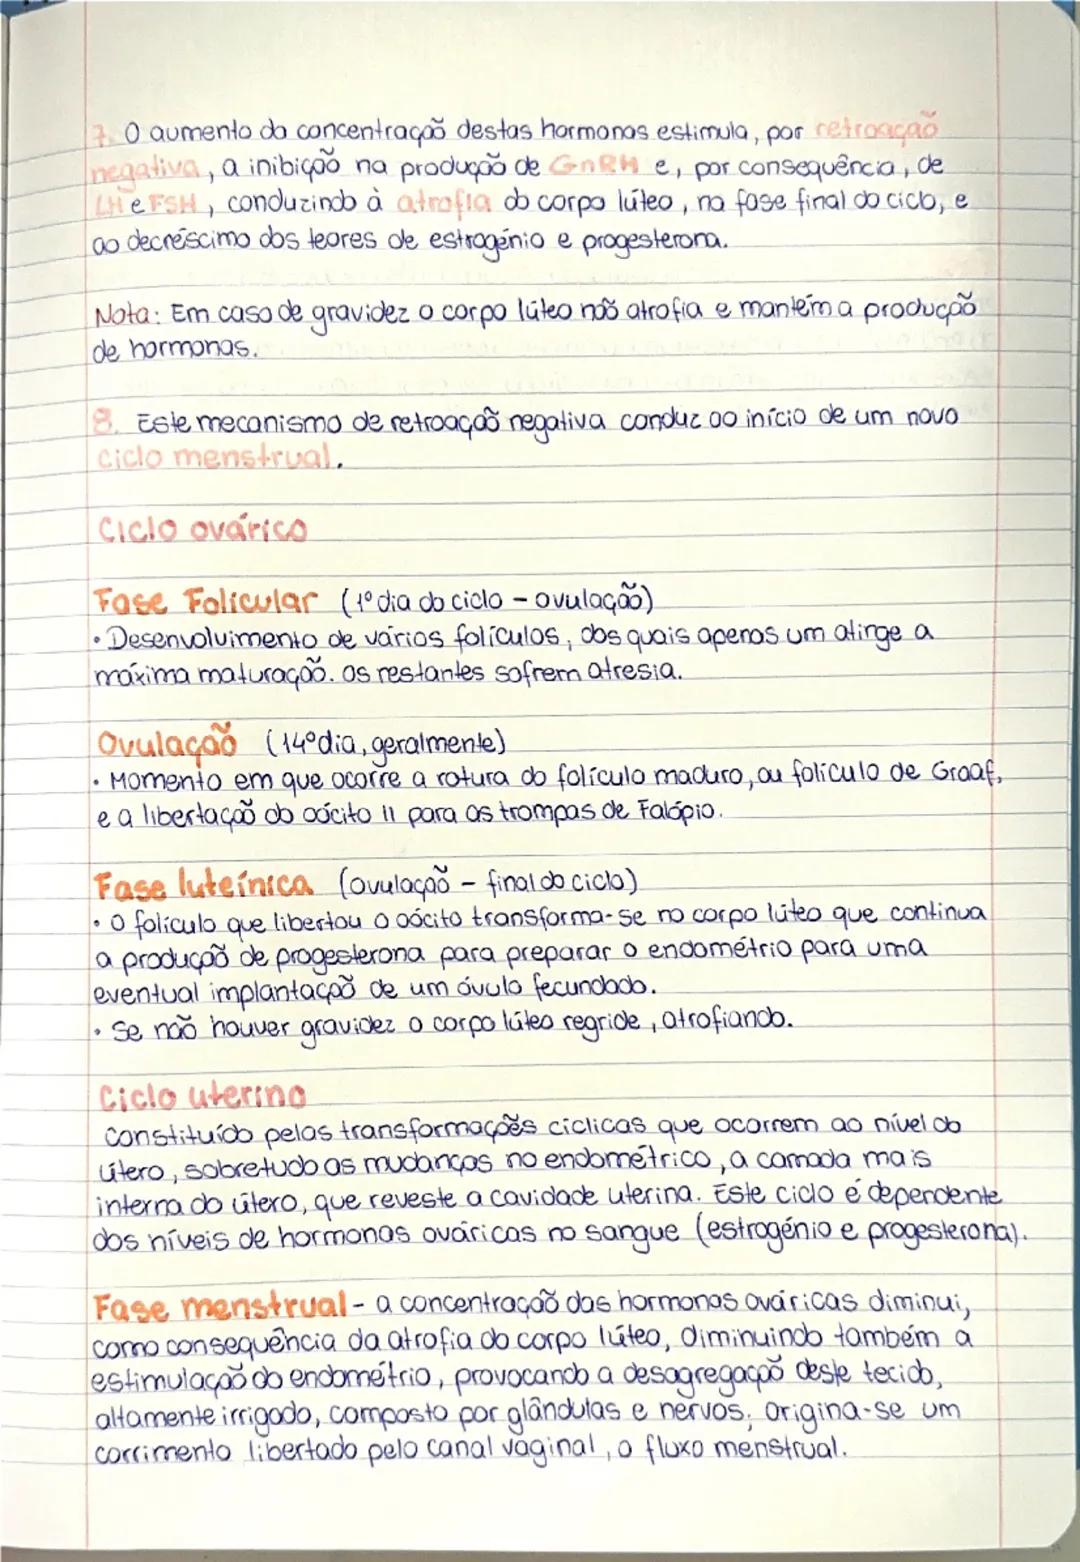 7. O aumento da concentração destas hormonas estimula, por retroação
negativa, a inibição na produção de GnRH e, por consequência, de
LH e FSH, conduzindo à atrofia do corpo lúteo, na fase final do ciclo, e
ao decréscimo dos teores de estrogénio e progesterona.
Nota: Em caso de gravidez o corpo lúteo não atrofia e mantém a produção
de hormonas.
8. Este mecanismo de retroação negativa conduz ao início de um novo
ciclo menstrual.
Ciclo ovárico
Fase Folicular (1º dia do ciclo - ovulação)
• Desenvolvimento de vários folículos, dos quais apenas um atinge a
máxima maturação. Os restantes sofrem atresia.
Ovulação (14º dia, geralmente)
• Momento em que ocorre a rotura do folículo maduro, ou folículo de Graaf,
e a libertação do oócito II para as trompas de Falópio.
Fase luteínica (ovulação - final do ciclo)
• O folículo que libertou o oócito transforma-se no corpo lúteo que continua
a produção de progesterona para preparar o endométrio para uma
eventual implantação de um óvulo fecundado.
• Se não houver gravidez o corpo lúteo regride, atrofiando.
Ciclo uterino
Constituído pelas transformações cíclicas que ocorrem ao nível do
útero, sobretudo as mudanças no endométrico, a camada mais
interna do útero, que reveste a cavidade uterina. Este ciclo é dependente
dos níveis de hormonas ováricas no sangue (estrogénio e progesterona).
Fase menstrual - a concentração das hormonas ováricas diminui,
como consequência da atrofia do corpo lúteo, diminuindo também a
estimulação do endométrio, provocando a desagregação deste tecido,
altamente irrigado, composto por glândulas e nervos. Origina-se um
corrimento libertado pelo canal vaginal, o fluxo menstrual.